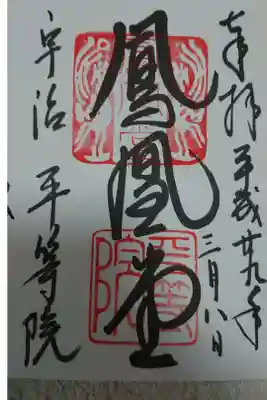 奉拝 平成廿九年
三月八日
鳳凰堂
宇治 平等院